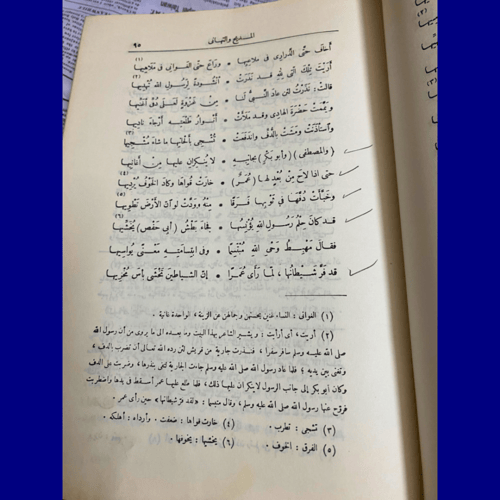 المديح والتهانى
٩٥
أخاف حتى الذرارى فى ملاعبها • وراع حتى الغوانى فى ملاهيها (١)
أريت تلك التى لله قد نذرت • أنشودة لرسول الله تهديها (٢)
قالت: نذرت لئن عاد النبى لنا • من غزوة لعلى دفى أغنيها
ويممت حضرة الهادى وقد ملأت • أنوار طلعته أرجاء ناديها
واستأذنت ومشت بالدف واندفعت • تشجى بألحانها ما شاء مشجيها (٣)
(والمصطفى) (وأبو بكر) بجانبه • لا ينكران عليها من أغانيها
حتى إذا لاح من بعد لها (عمر) • خارت قواها وكاد الخوف يرديها (٤)
وخبأت دفها فى ثوبها فرقا • منه وودت لو ان الأرض تطويها (٥)
قد كان حلم رسول الله يؤنسها • فجاء بطش (أبى حفص) يخشيها (٦)
فقال مهبط وحى الله مبتسما • وفى ابتسامته معنى يواسيها
قد فر شيطانها لما رأى عمرا • إن الشياطين تخشى بأس مخزيها
(١) الغوانى : النساء غنين بحسنهن وجمالهن عن الزينة ، الواحدة غانية .
(٢) أريت ، أى أرأيت : ويشير الشاعر بهذا البيت وما بعده الى ما يروى من أن رسول الله
صلى الله عليه وسلم سافر سفرا ، فنذرت جارية من قريش لئن رده الله تعالى أن تضرب بالدف ،
وتغنى بين يديه ؛ فلما عاد رسول الله صلى الله عليه وسلم جاءت الجارية لتفى بنذرها ، وضربت على الدف
وكان ابو بكر إلى جانب الرسول لا ينكران عليها ذلك ، فلما طلع عليها عمر أسقط فى يدها واضطربت
فروح عنها رسول الله صلى الله عليه وسلم ، وقال متبسما : «لقد فر شيطانها» حين رأى عمر .
(٣) تشجى : تطرب . (٤) خارت قواها : ضعفت . وأرداه : أهلكه .
(٥) الفرق : الخوف . (٦) يخشيها : يخوفها .